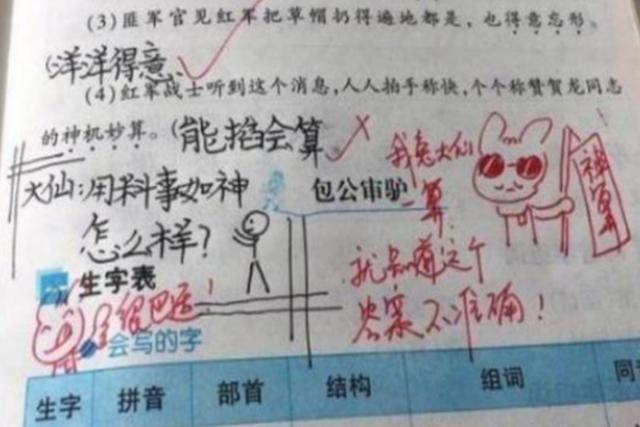 (3)匪军官见红军把草帽扔得遍地都是，也得意忘形。
(洋洋得意
(4)红军战士听到这个消息，人人拍手称快，个个称赞贺龙同志
的神机妙算。(能掐会算
大仙:用料事如神
怎么样?
我兔大仙
一算
就知道这个
答案不准确!
神算
包公审驴
生字表
很巴适!
会写的字
生字 拼音 部首 结构 组词